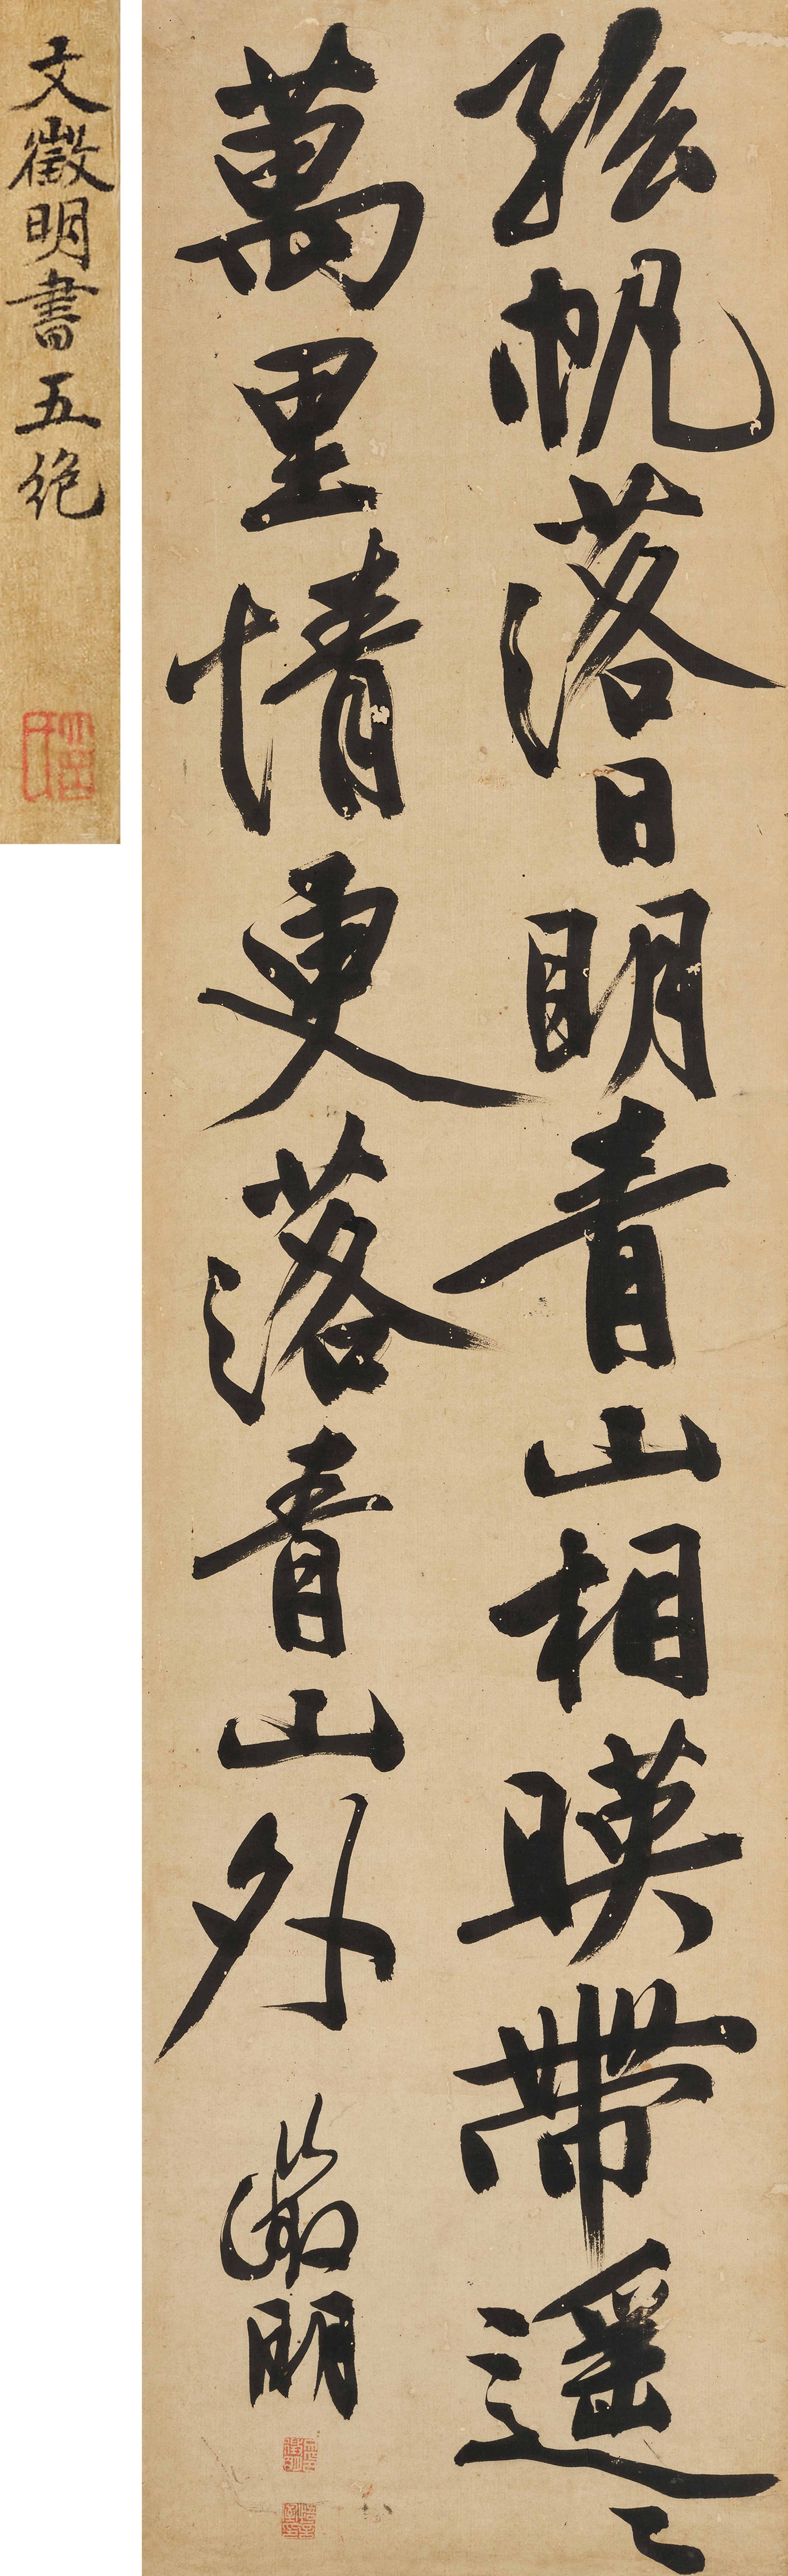 孤帆落日明青山相暎帶遥〻
萬里情更落青山外
徵明
文徵明書五絶